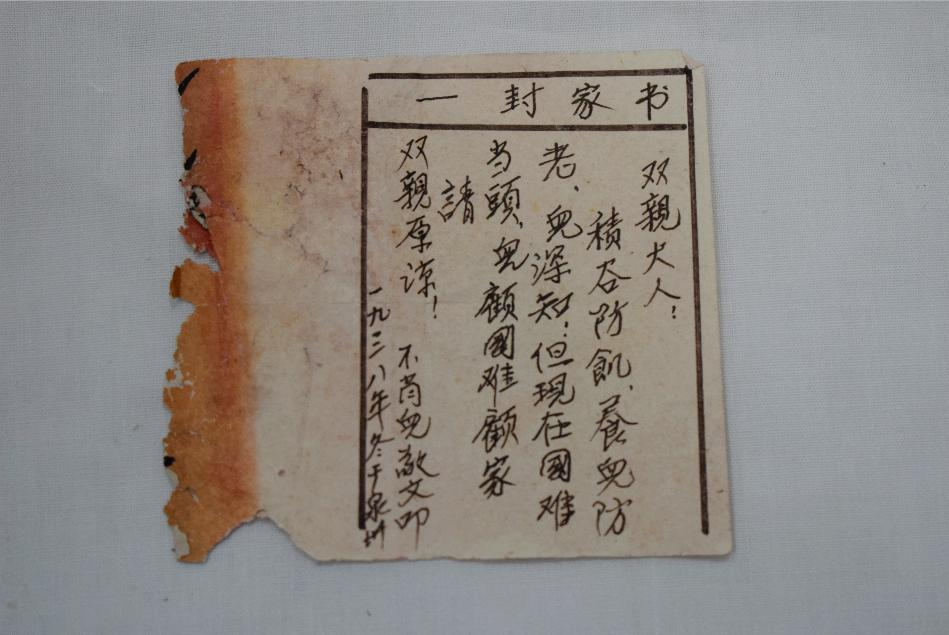 一封家书
双親大人：
積谷防飢、養兒防
老、兒深知；但現在國难
当頭、兒顧國难顧家
請
双親原谅！ 不肖兒文叩
一九三八年冬于泉州